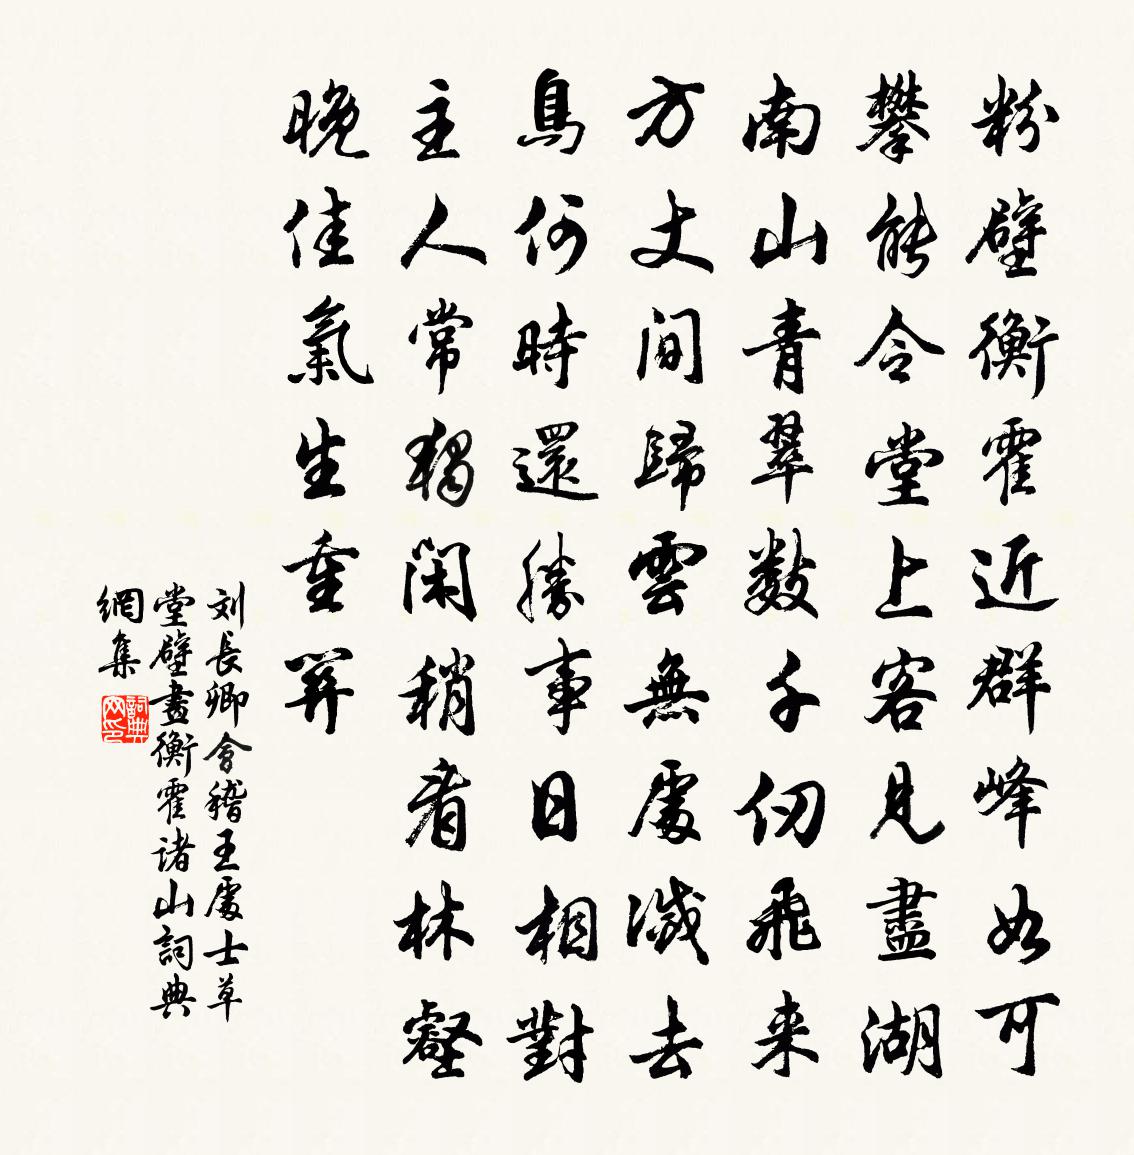 粉壁衡霍近群峰如可
攀能令堂上客見盡湖
南山青翠數千仞飛来
方丈間歸雲無處滅去
鳥何時還勝事日相對
主人常獨閑稍看林壑
晚佳氣生重關
刘長卿會稽王處士草
堂壁畫衡霍诸山詞典
網集
詞典
网印